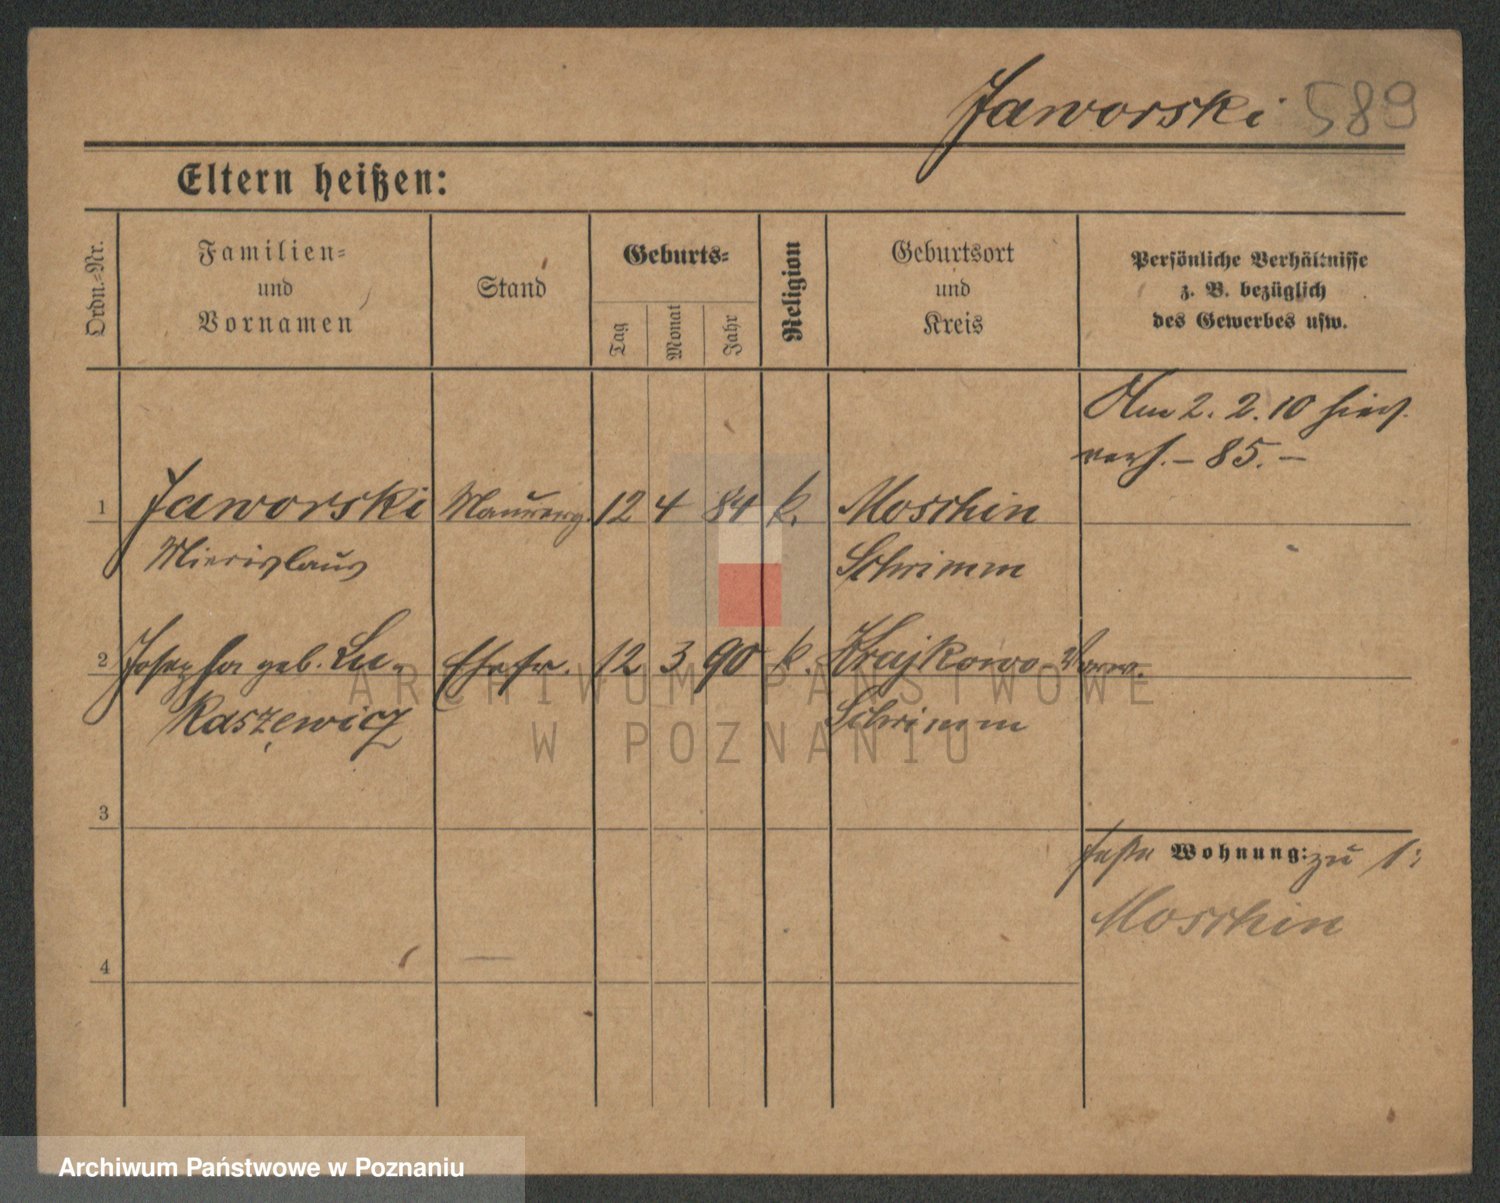 Jaworski 589
Eltern heißen:
Ordn.-Nr.
Familien-
und
Vornamen
Stand
Geburts-
Tag
Monat
Jahr
Religion
Geburtsort
und
Kreis
Persönliche Verhältnisse
z. B. bezüglich
des Gewerbes usw.
Am 2. 2. 10 hier
verh. – 85. –
1 Jaworski Maurerg. 12 4 84 k. Moschin
Miecislaus Schrimm
2 Josepha geb. Lu- Ehefr. 12 3 90 k. Krajkowo
kaszewicz Schrimm
3
Wohnung: zu 1:
Moschin
4
ARCHIWUM PAŃSTWOWE
W POZNANIU
Archiwum Państwowe w Poznaniu